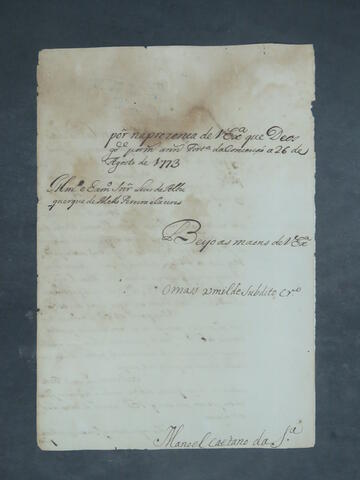 põr na prezença de V Exª que Deos
gᵈᵉ por mˢ annˢ Fortª da Conceiçaõ a 26 de
Agosto de 1773
Illmº e Exmº Snr̃ Luis de Albu
querque de Mello Pereira e Caceres
Beijo as maens de V Exª
O mais umilde Subdito, e Crº
Manoel Caetano da Sª